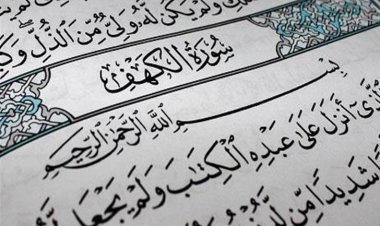 وَلَمْ يَكُن لَّهُۥ وَلِىٌّ مِّنَ ٱلذُّلِّ ۖ وَكَ
سُورَةُ الكَهْفِ
بِسْمِ ٱللَّهِ ٱلرَّحْمَٰنِ ٱلرَّحِيمِ
أَنزَلَ عَلَىٰ عَبْدِهِ ٱلْكِتَٰبَ وَلَمْ يَجْعَل
شَدِيدًا مِّن